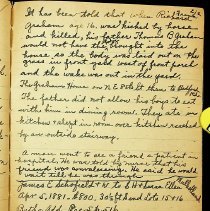 It has been told that when Richard
Graham age 16 was kicked by horse
and killed, his father Thomas Graham
would not have the brought into the
house so the body was laid out on the
grass in front yard west of front porch
and the wake was out in the yard.
The Graham House on N.E. 80th then to
The father did not allow his boys to eat
with him in dining room. They ate in
kitchen & slept in room over kitchen reached
by an outside stairway.
A man went to see a friend a patient in
hospital. He was told by nurse that his
friend was convalescing. He said he would
wait till he was through.
James E. Schofield N to E H Chase
Apr 5, 1881. $800. 306 ft and Lots 15 & 16